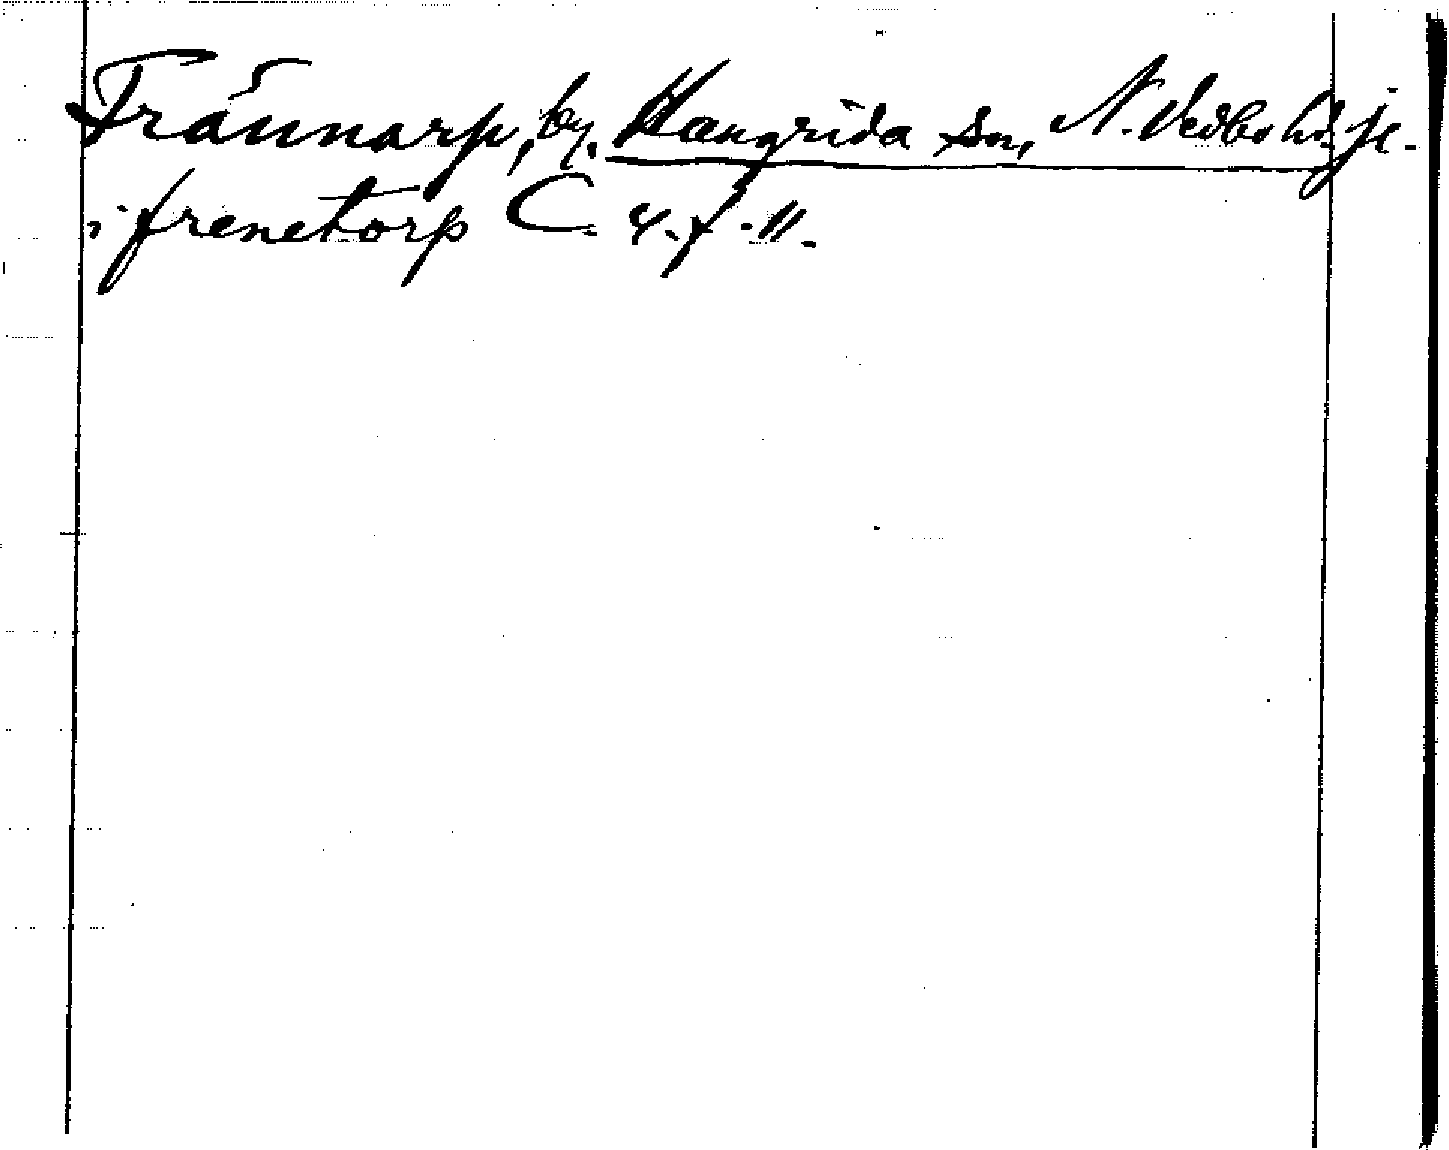 Frännarp, by. Haurida sn, N. Vedbo hd. Je.
i frenetorp C. 4. f. 11.